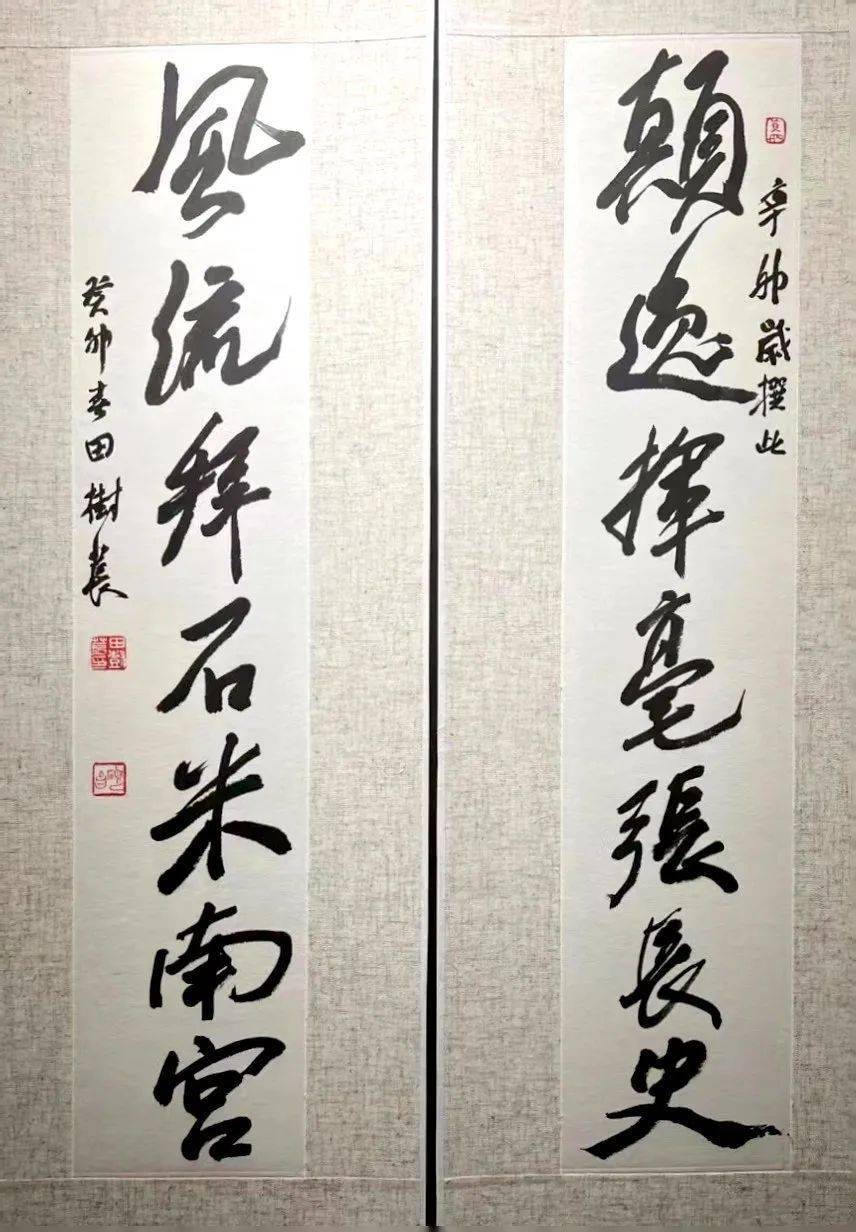 辛卯歲撰此
顛逸揮毫張長史
風流拜石米南宮
癸卯春田樹萇
田樹萇印